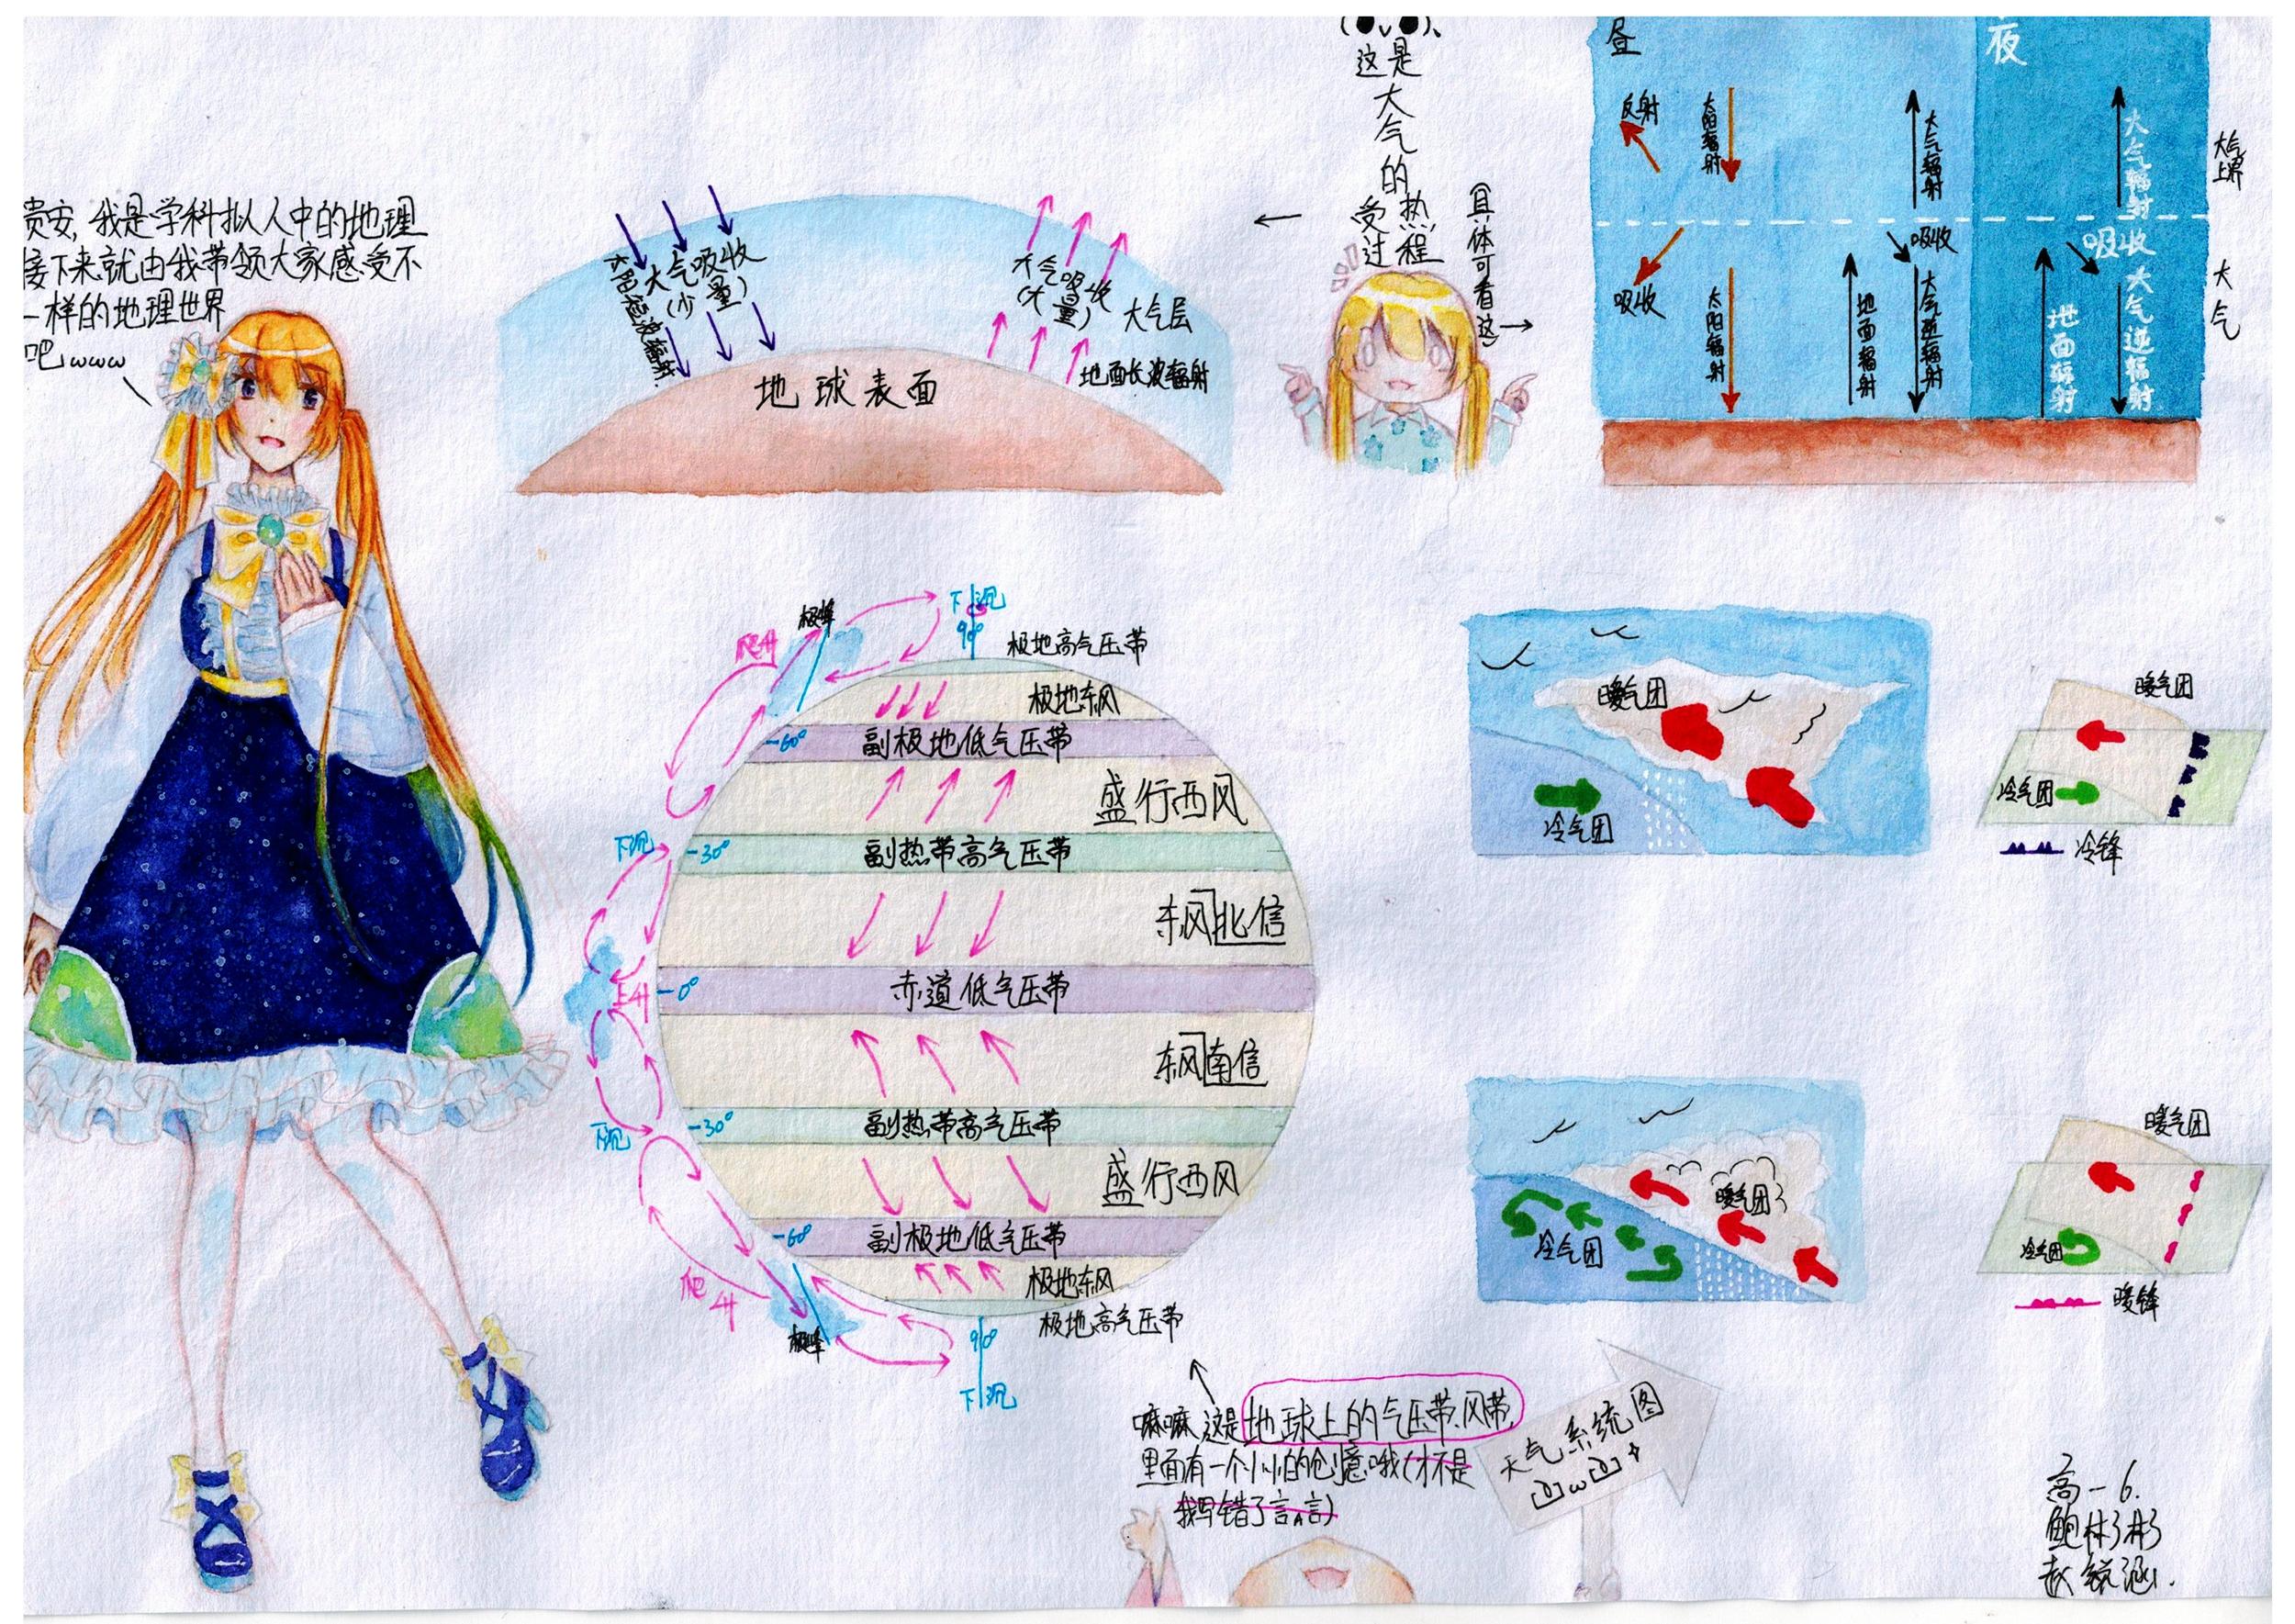 贵安,我是学科拟人中的地理
接下来就由我带领大家感受不
一样的地理世界
吧www
太阳短波辐射.
大气吸收
(少量)
大气吸收
(大量)
大气层
地面长波辐射
地球表面
这是大气的受热过程
具体可看这
昼
夜
反射
太阳辐射
大气辐射
大气辐射
大气上界
吸收
太阳辐射
地面辐射
吸收
大气逆辐射
地面辐射
吸收
大气逆辐射
大气
下沉
90°
极锋
爬升
极地高气压带
极地东风
-60°
副极地低气压带
盛行西风
下沉
-30°
副热带高气压带
东风北信
上升
-0°
赤道低气压带
东风南信
下沉
-30°
副热带高气压带
盛行西风
-60°
副极地低气压带
极地东风
极地高气压带
爬升
极锋
90°
下沉
暖气团
冷气团
暖气团
冷气团
冷锋
暖气团
冷气团
暖气团
冷气团
暖锋
嘛嘛,这是地球上的气压带、风带,
里面有一个小小的创意哦(才不是
我写错了言言)
天气系统图
高一6.
鲍彬彬
赵锐涵.